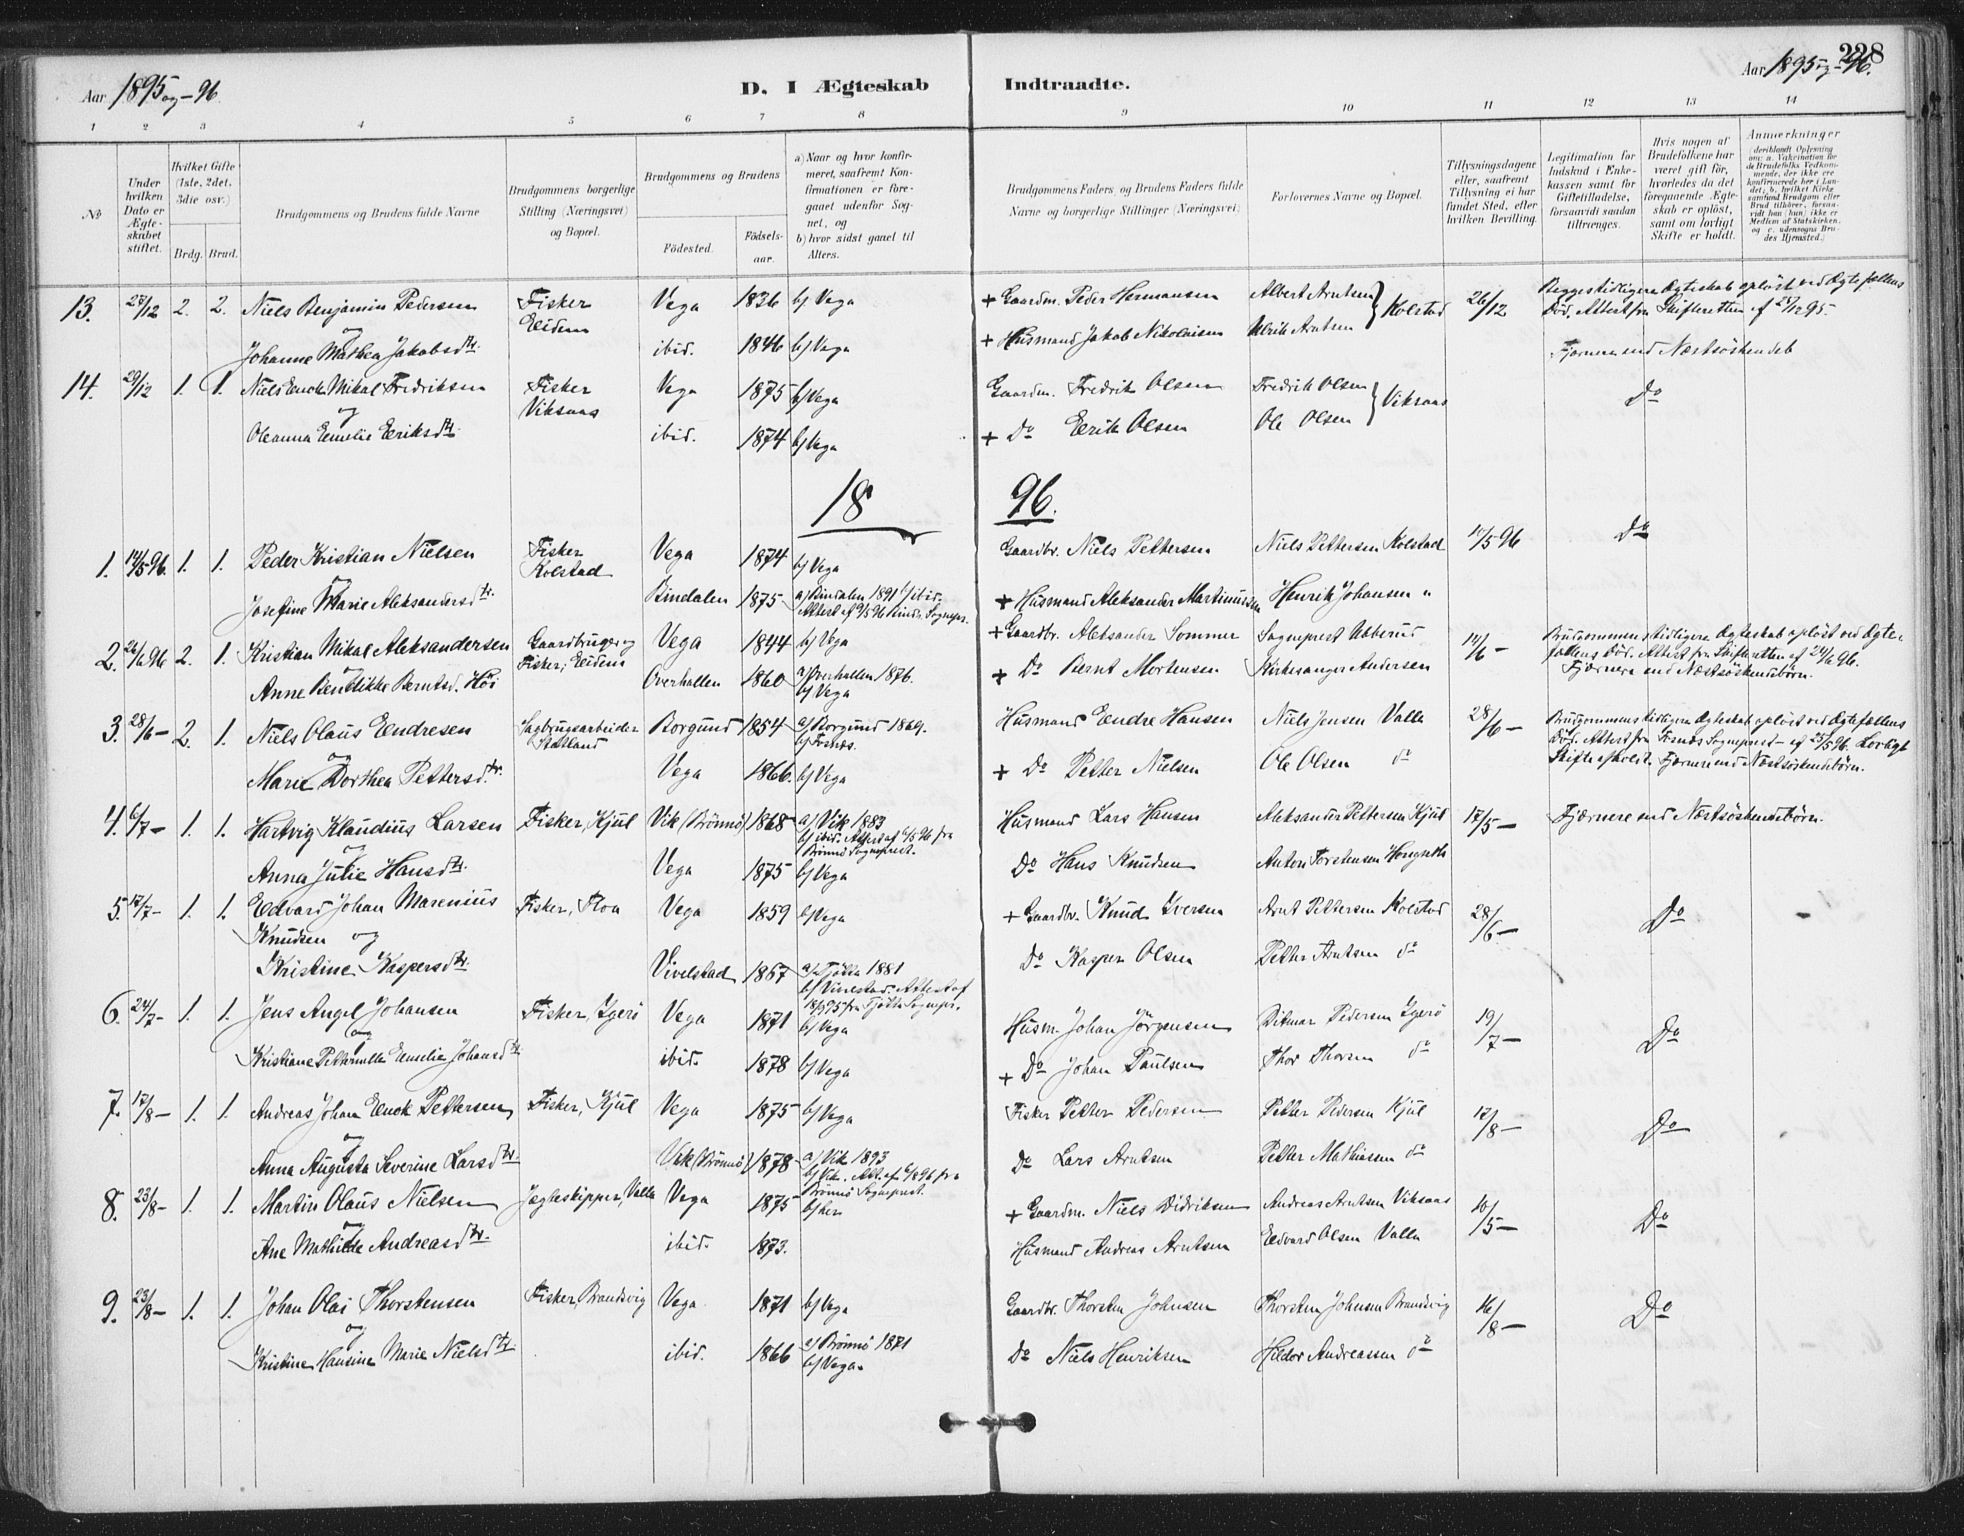 228
Aar 1895 og - 96.
D. I Ægteskab Indtraadte.
Aar 1895 og - 96.
1 2 3 4 5 6 7 8 9 10 11 12 13 14
No
Under hvilken Dato er Ægteskabet stiftet.
Hvilket Gifte (1ste, 2det, 3die osv.)
Brdg. Brud.
Brudgommens og Brudens fulde Navne
Brudgommens borgerlige Stilling (Næringsvei) og Bopæl.
Brudgommens og Brudens
Fødested. Fødsels-aar.
a) Naar og hvor konfirmeret, saafremt Konfirmationen er foregaaet udenfor Sognet, og
b) hvor sidst gaaet til Alters.
Brudgommens Faders, og Brudens Faders fulde Navne og borgerlige Stillinger (Næringsvei)
Forlovernes Navne og Bopæl.
Tillysningsdagene eller, saafremt Tillysning ei har fundet Sted, efter hvilken Bevilling.
Legitimation for Indskud i Enkekassen samt for Giftetilladelse, forsaavidt saadan tiltrænges.
Hvis nogen af Brudefolkene har været gift før, hvorledes da det foregaaende Ægteskab er opløst, samt om lovligt Skifte er holdt.
Anmerkninger (deriblandt Oplysning om: a. Vakcination for de Brudefolks Vedkommende, der ikke ere konfirmerede her i Landet; b. hvilket Kirkesamfund Brudgom eller Brud tilhører, forsaavidt han (hun) ikke er Medlem af Statskirken, og c. udensogns Brudes Hjemsted.)
13. 27/12 2. 2. Niels Benjamin Pedersen Fisker Eidem Vega 1836 b/ Vega + Gaardm. Peder Hermansen Albert Arntsen Kolstad 26/12 Begges tidligere Ægteskab opløst ved Ægtefællens
og Død. Attest fra Skifteretten af 95.
Johanne Mathea Jakobsdtr. ibid. 1846 b/ Vega + Husmand Jakob Nikolaisen Ulrik Arntsen Fjernere end Næstsøskendeb
14. 29/12 1. 1. Niels Enok Mikal Fredriksen Fisker Viksaas Vega 1875 b/ Vega Gaardm. Fredrik Olsen Fredrik Olsen Viksaas Do
og
Oleanna Emelie Eriksdtr. ibid. 1874 b/ Vega + Do Erik Olsen Ole Olsen
18 96.
1. 14/5 96. 1. 1. Peder Kristian Nielsen Fisker Kolstad Vega 1874 b/ Vega Gaardbr. Niels Pettersen Niels Pettersen Kolstad /5 96 Do
og
Josefine Marie Aleksandersdtr. Bindalen 1875 a) Bindalen 1891 b/ ibid. + Husmand Aleksander Martinussen Henrik Johansen "
Attest af 96 Bind. Sognepr.
2. 26/6 96 2. 1. Kristian Mikal Aleksandersen Gaardbruger og Fisker, Eidem Vega 1844 b/ Vega + Gaardbr. Aleksander Sommer Sogneprest 14/6 - Brudgommens tidligere Ægteskab opløst ved Ægtefællens Død. Attest fra Skifteretten af 24/6 96.
Anne Bendikke Berntsd. Höi Overhallen 1860 a) Overhallen 1876. b/ Vega + Do Bernt Mortensen Kirkesanger Andersen Fjærnere end Næstsøskendebörn.
3. 28/6 - 2. 1. Niels Olaus Endresen Sagbrugsarbeider Vega Borgund 1854 a/ Borgund 1869. b/ Fosnæs. Husmand Endre Hansen Niels Jensen Valla 28/6 - Brudgommens tidligere Ægteskab opløst ved Ægtefællens
og Død. Attest fra Fosnæs Sogneprest - af 25/5 96. Lovligt
Marie Dorthea Pettersdtr. Vega 1866. b/ Vega + Do Petter Nielsen Ole Olsen do Skifte afholdt. Fjærnere end Næstsøskendebörn.
4. 6/7 - 1. 1. Hartvig Klaudius Larsen Fisker, Kjul Vik (Brönnö) 1868 a) Vik 1883 Husmand Lars Hansen Aleksander Pettersen Kjul 17/5 - Fjærnere end Næstsøskendebörn.
og b/ ibid. Attest af 96 fra Brönnö Sogneprest.
Anna Julie Hansdtr. Vega 1875 b/ Vega Do Hans Knudsen Anton Torstensen
5. 17/7 - 1. 1. Edvard Johan Marenius Knudsen og Fisker, Floa Vega 1859 b/ Vega + Gaardbr. Knud Iversen Arnt Pettersen Kolstad 28/6 - Do
Kristine Kaspersdtr. Vivelstad 1867 a) Tjötta 1881 Do Kasper Olsen Petter Arntsen do
b/ Vivelstad. Attest af 95 fra Tjötta Sognepr.
6. 24/7 - 1. 1. Jens Angel Johansen Fisker, Ygerö Vega 1871 b/ Vega Husm. Johan Jörgensen Ditmar Pedersen Ygerö 19/7 - Do
og
Kristiane Petternille Emelie Johansdtr. ibid. 1878 b/ Vega + Do Johan Paulsen Thor Thorsen do
7. 17/8 - 1. 1. Andreas Johan Enok Pettersen Fisker, Kjul Vega 1875 b/ Vega Fisker Petter Pedersen Petter Pedersen Kjul 17/8 - Do
og
Anna Augusta Severine Larsdtr. Vik (Brönnö) 1878 a) Vik 1893 Do Lars Arntsen Petter Mathiassen do
b/ Vik. Att. af 96 fra Brönnö Sogneprest.
8. 23/8 - 1. 1. Martin Olaus Nielsen Jægteskipper, Valla Vega 1875 b/ her + Gaardm. Niels Didriksen Andreas Arntsen Viksaas 10/5 - Do
og
Ane Mathilde Andreasdtr. ibid. 1873. Husmand Andreas Arntsen Edvard Olsen Valla
9. 23/8 - 1. 1. Johan Olai Thorstensen Fisker, Brandsvig Vega 1871 b/ Vega Gaardbr. Thorsten Johnsen Thorsten Johnsen Brandsvig 16/8 - Do
og
Kristine Hansine Marie Nielsdtr. ibid. 1866 a) Brönnö 1871 b/ Vega Do Niels Henriksen Hildor Andreassen do